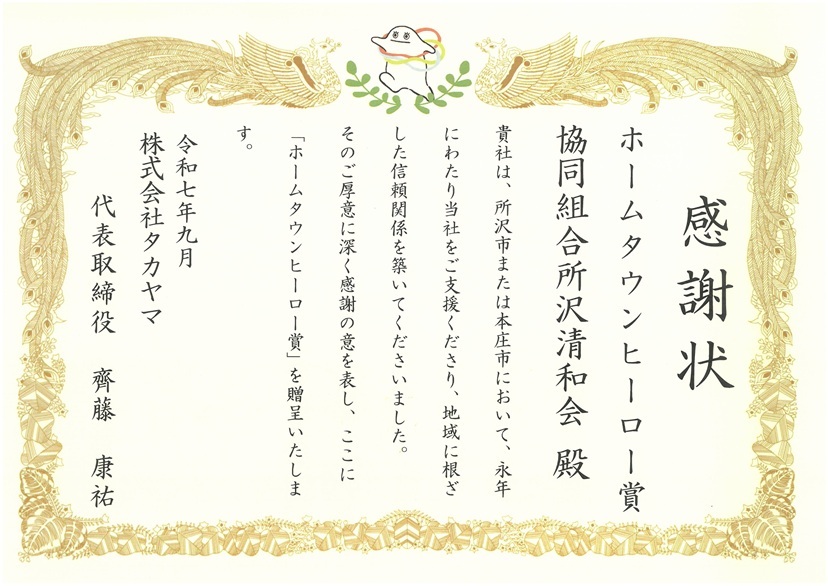 感謝状
ホームタウンヒーロー賞
協同組合所沢清和会 殿
貴社は、所沢市または本庄市において、永年
にわたり当社をご支援くださり、地域に根ざ
した信頼関係を築いてくださいました。
そのご厚意に深く感謝の意を表し、ここに
「ホームタウンヒーロー賞」を贈呈いたしま
す。
令和七年九月
株式会社タカヤマ
代表取締役 齊藤 康祐